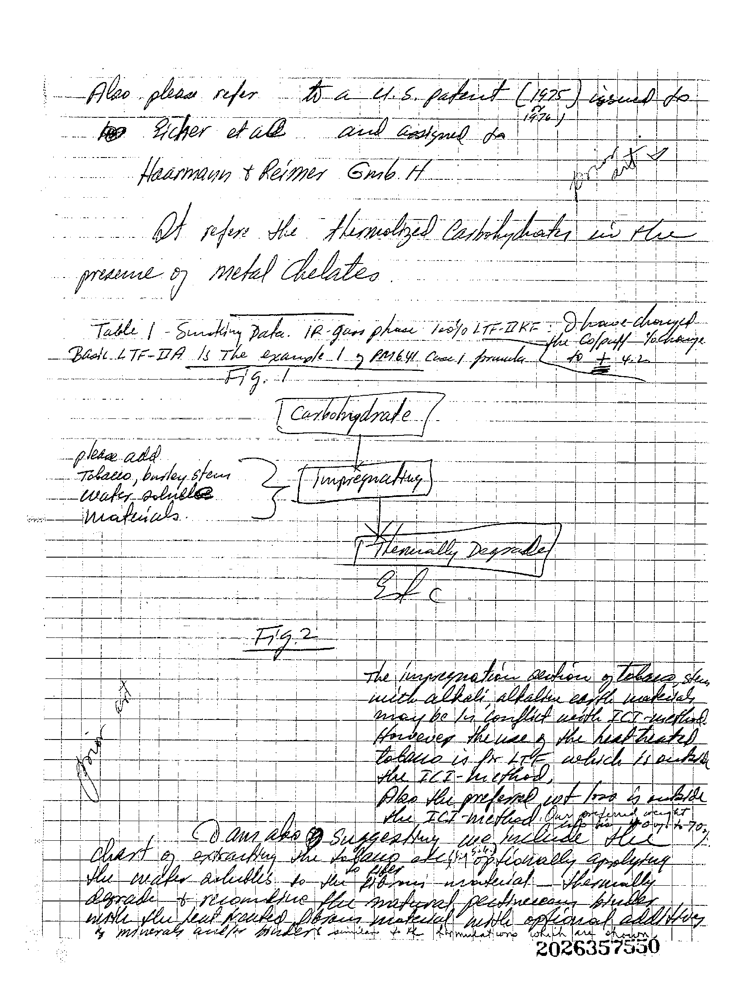 Also please refer to a U.S. patent (1975) issued to
or 1976)
to Eicher et all and assigned to
Haarmann & Reimer Gmb. H
prior art
It refers the thermolized Carbohydrates in the
presence of metal Chelates.
Table 1 - Smoking Data. IR-gas phase 100% LTF-II KF: I have changed
the Co/puff % change
Basic LTF-IIA Is The example 1 of PM641 Case 1 formula to + 4.2
Fig. 1
Carbohydrate
please add
Tobacco, burley stem
water soluble
Materials.
Impregnating
Thermally Degrade
Etc
Fig. 2
prior art
The impregnation section of tobacco stem
with alkali, alkaline earth materials
may be in conflict with ICI-method.
However the use of the heat treated
tobacco is for LTF which is outside
the ICI-method.
Also the preferred wt loss is outside
the ICI-method. Our preferred weight
loss is to 70%
I am also suggesting we include the
chart of extracting the tobacco optionally applying
the water solubles to the fibrous material - thermally
degrade & recombine the natural pectinaceous binder
with the heat treated fibrous material with optional additives
of minerals and/or binders similar to the formulations which are shown.
2026357550